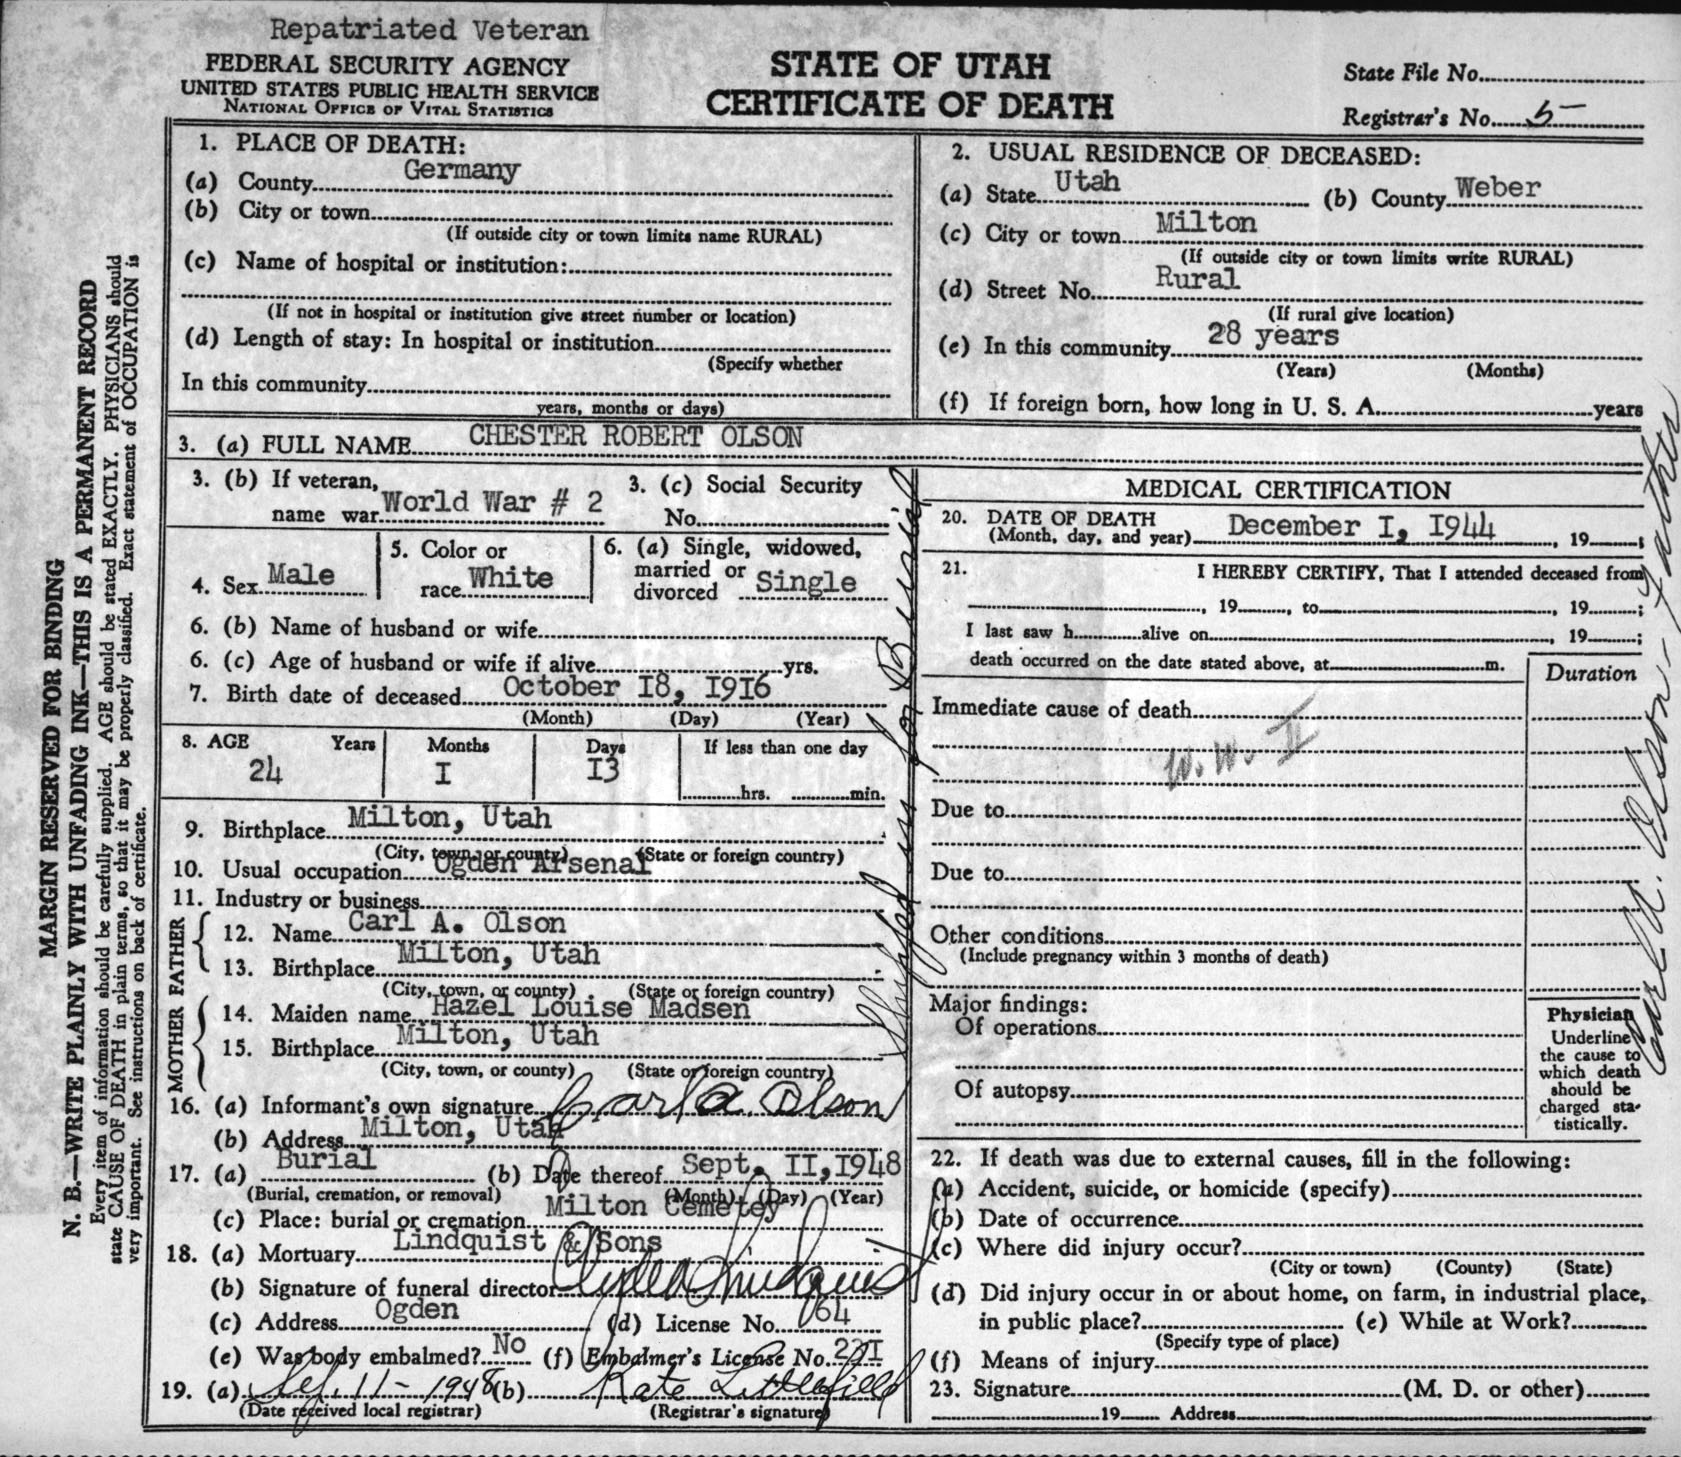 Repatriated Veteran
FEDERAL SECURITY AGENCY
UNITED STATES PUBLIC HEALTH SERVICE
NATIONAL OFFICE OF VITAL STATISTICS
STATE OF UTAH
CERTIFICATE OF DEATH
State File No.
Registrar's No. 5
MARGIN RESERVED FOR BINDING
N. B.—WRITE PLAINLY WITH UNFADING INK—THIS IS A PERMANENT RECORD
Every item of information should be carefully supplied. AGE should be stated EXACTLY. PHYSICIANS should
state CAUSE OF DEATH in plain terms, so that it may be properly classified. Exact statement of OCCUPATION is
very important. See instructions on back of certificate.
1. PLACE OF DEATH:
(a) County Germany
(b) City or town
(If outside city or town limits name RURAL)
(c) Name of hospital or institution:
(If not in hospital or institution give street number or location)
(d) Length of stay: In hospital or institution
(Specify whether
In this community
years, months or days)
2. USUAL RESIDENCE OF DECEASED:
(a) State Utah (b) County Weber
(c) City or town Milton
(If outside city or town limits write RURAL)
(d) Street No. Rural
(If rural give location)
(e) In this community 28 years
(Years) (Months)
(f) If foreign born, how long in U. S. A. years
3. (a) FULL NAME CHESTER ROBERT OLSON
3. (b) If veteran, name war World War # 2
3. (c) Social Security No.
4. Sex Male
5. Color or race White
6. (a) Single, widowed, married or divorced Single
6. (b) Name of husband or wife
6. (c) Age of husband or wife if alive yrs.
7. Birth date of deceased October I8, I9I6
(Month) (Day) (Year)
8. AGE Years Months Days If less than one day
24 I I3 hrs. min.
9. Birthplace Milton, Utah
(City, town, or county) (State or foreign country)
10. Usual occupation Ogden Arsenal
11. Industry or business
FATHER
12. Name Carl A. Olson
13. Birthplace Milton, Utah
(City, town, or county) (State or foreign country)
MOTHER
14. Maiden name Hazel Louise Madsen
15. Birthplace Milton, Utah
(City, town, or county) (State or foreign country)
16. (a) Informant's own signature Carl A. Olson
(b) Address Milton, Utah
17. (a) Burial (b) Date thereof Sept. II, I948
(Burial, cremation, or removal) (Month) (Day) (Year)
(c) Place: burial or cremation Milton Cemetey
18. (a) Mortuary Lindquist & Sons
(b) Signature of funeral director Lindquist
(c) Address Ogden (d) License No. 64
(e) Was body embalmed? No (f) Embalmer's License No. 22I
19. (a) 11 - 1948 (b) Kate Littlefield
(Date received local registrar) (Registrar's signature)
Shipped in for Burial
MEDICAL CERTIFICATION
20. DATE OF DEATH
(Month, day, and year) December I, I944, 19 ;
21. I HEREBY CERTIFY, That I attended deceased from
, 19 , to , 19 ;
I last saw h alive on , 19 ;
death occurred on the date stated above, at m.
Duration
Immediate cause of death
W. W. II
Due to
Due to
Other conditions
(Include pregnancy within 3 months of death)
Major findings:
Of operations
Of autopsy
Physician
Underline
the cause to
which death
should be
charged sta-
tistically.
22. If death was due to external causes, fill in the following:
(a) Accident, suicide, or homicide (specify)
(b) Date of occurrence
(c) Where did injury occur?
(City or town) (County) (State)
(d) Did injury occur in or about home, on farm, in industrial place,
in public place? (e) While at Work?
(Specify type of place)
(f) Means of injury
23. Signature (M. D. or other)
19 Address
Olson - Father